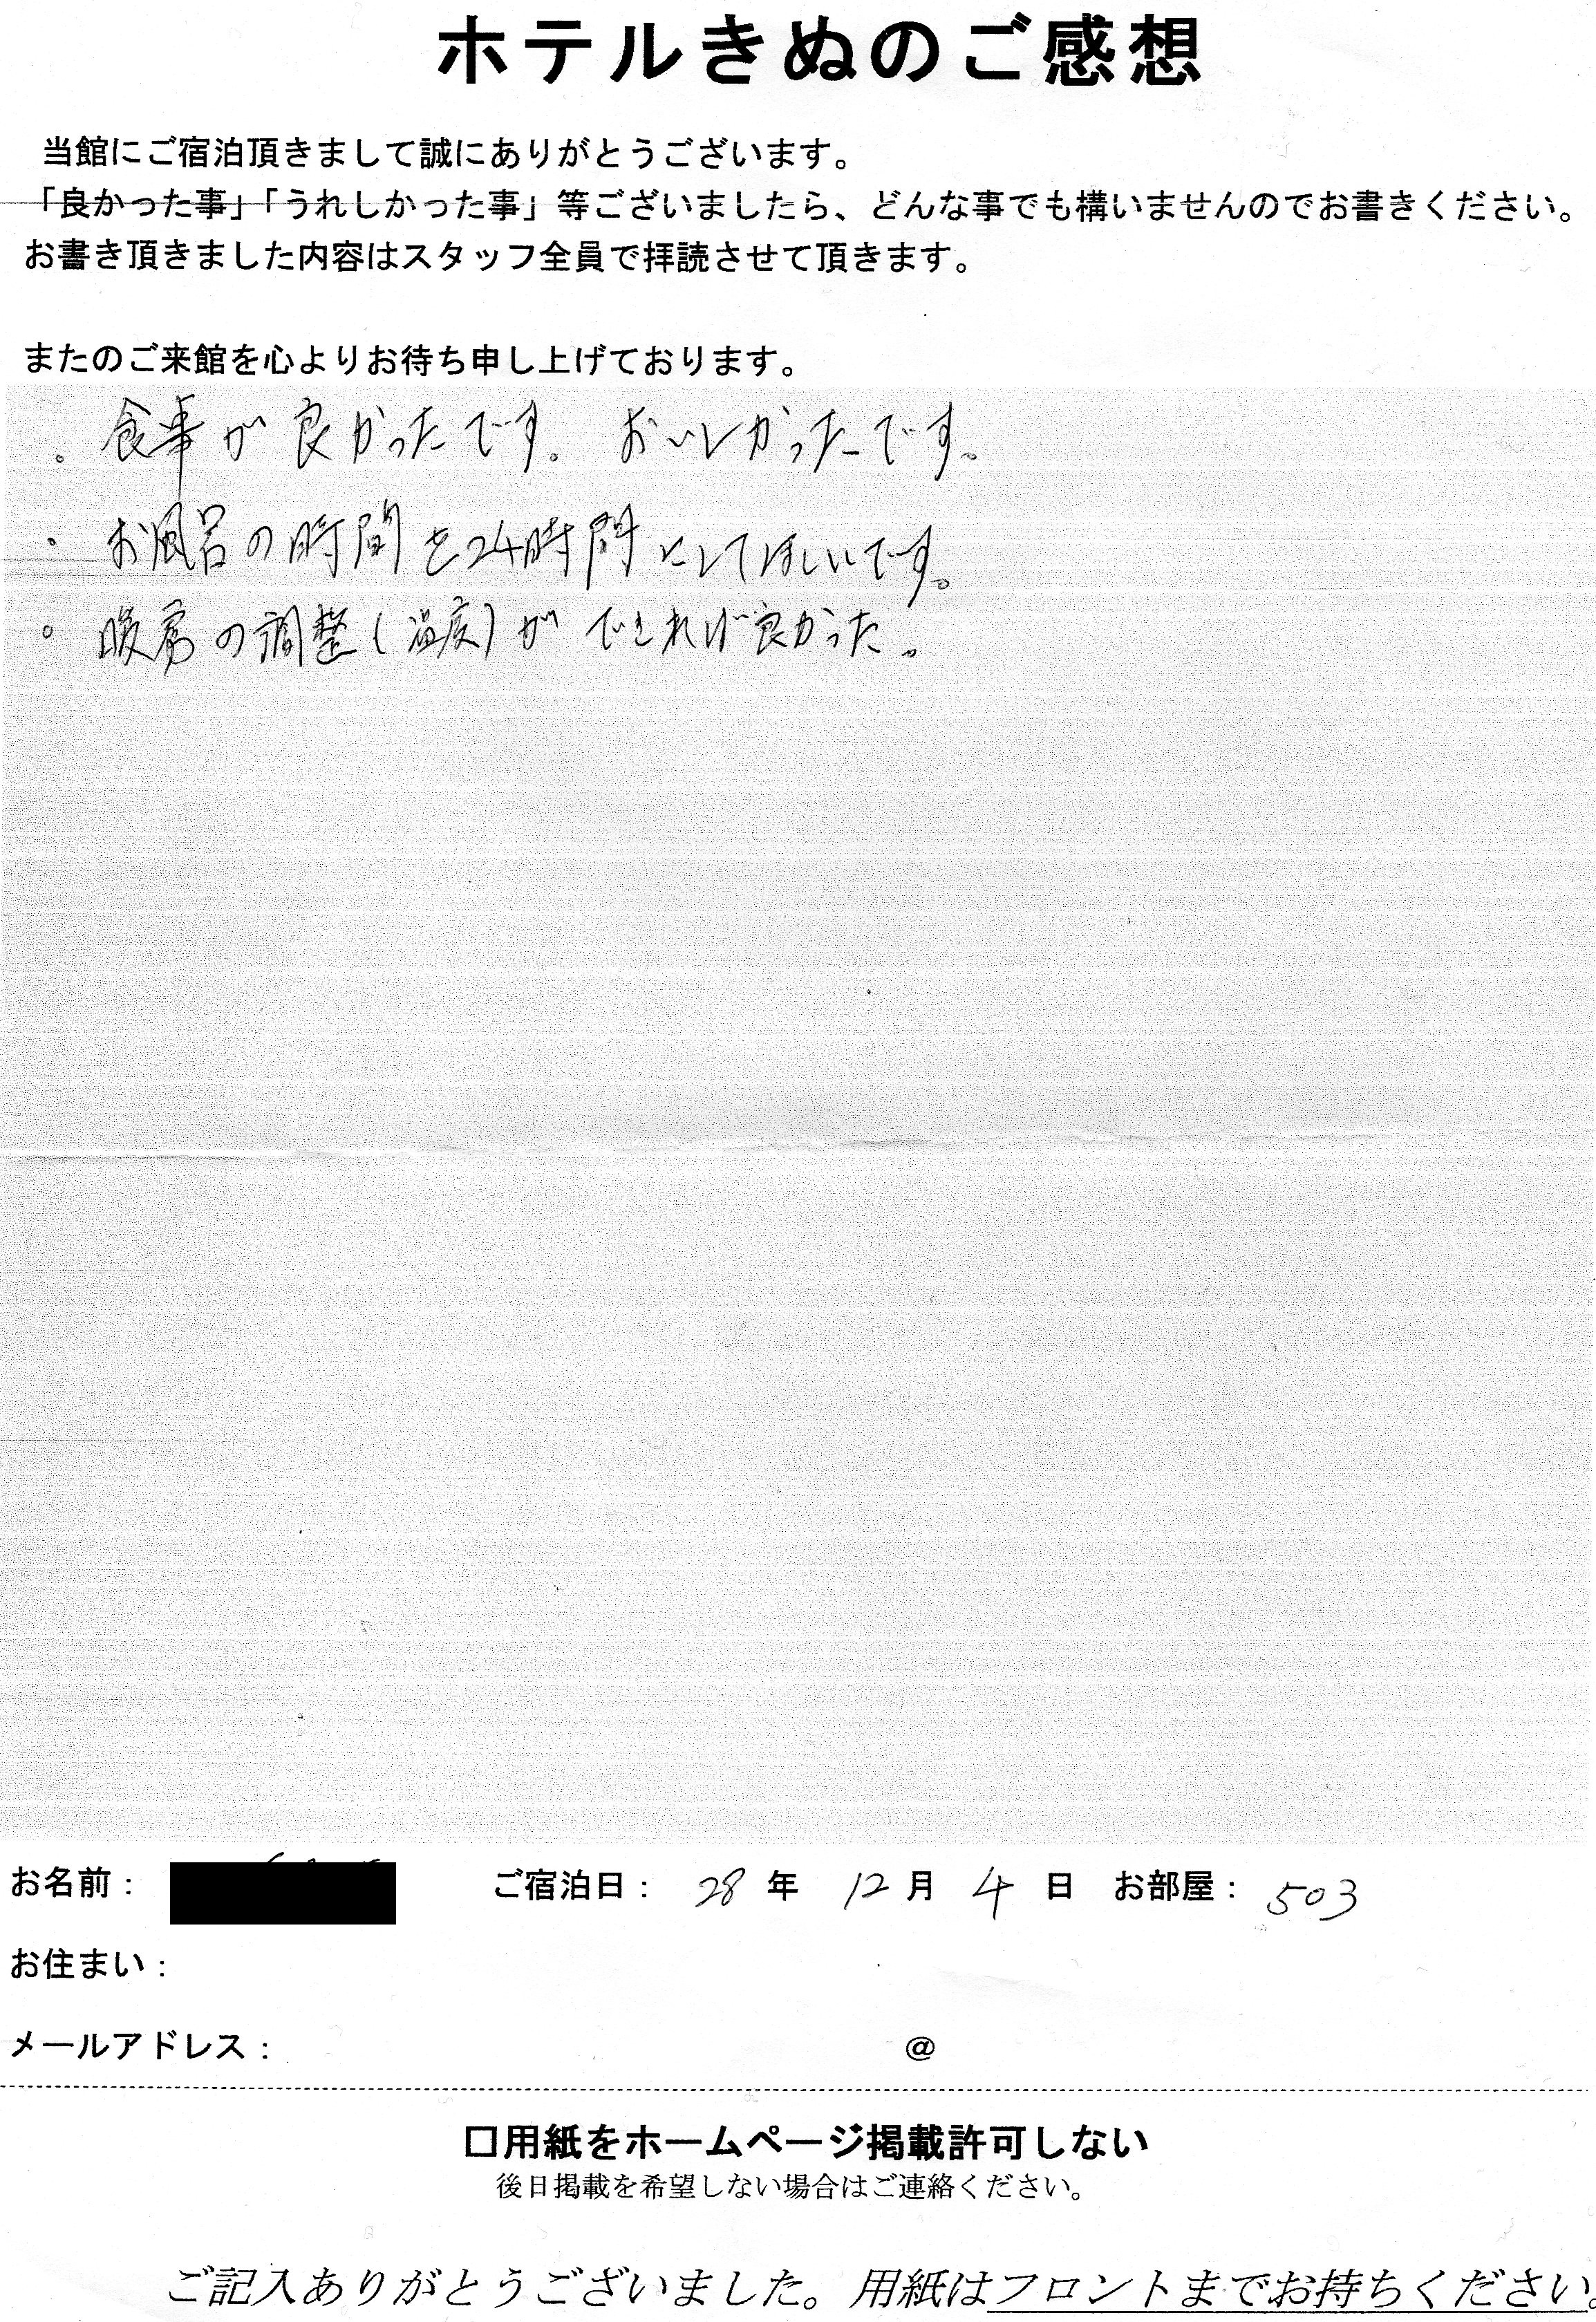 ホテルきぬのご感想
当館にご宿泊頂きまして誠にありがとうございます。
「良かった事」「うれしかった事」等ございましたら、どんな事でも構いませんのでお書きください。
お書き頂きました内容はスタッフ全員で拝読させて頂きます。
またのご来館を心よりお待ち申し上げております。
。食事が良かったです。おいしかったです。
・お風呂の時間を24時間にしてほしいです。
。暖房の調整(温度)ができれば良かった。
お名前： ご宿泊日： 28 年 12 月 4 日 お部屋： 503
お住まい：
メールアドレス： @
□用紙をホームページ掲載許可しない
後日掲載を希望しない場合はご連絡ください。
ご記入ありがとうございました。用紙はフロントまでお持ちください。